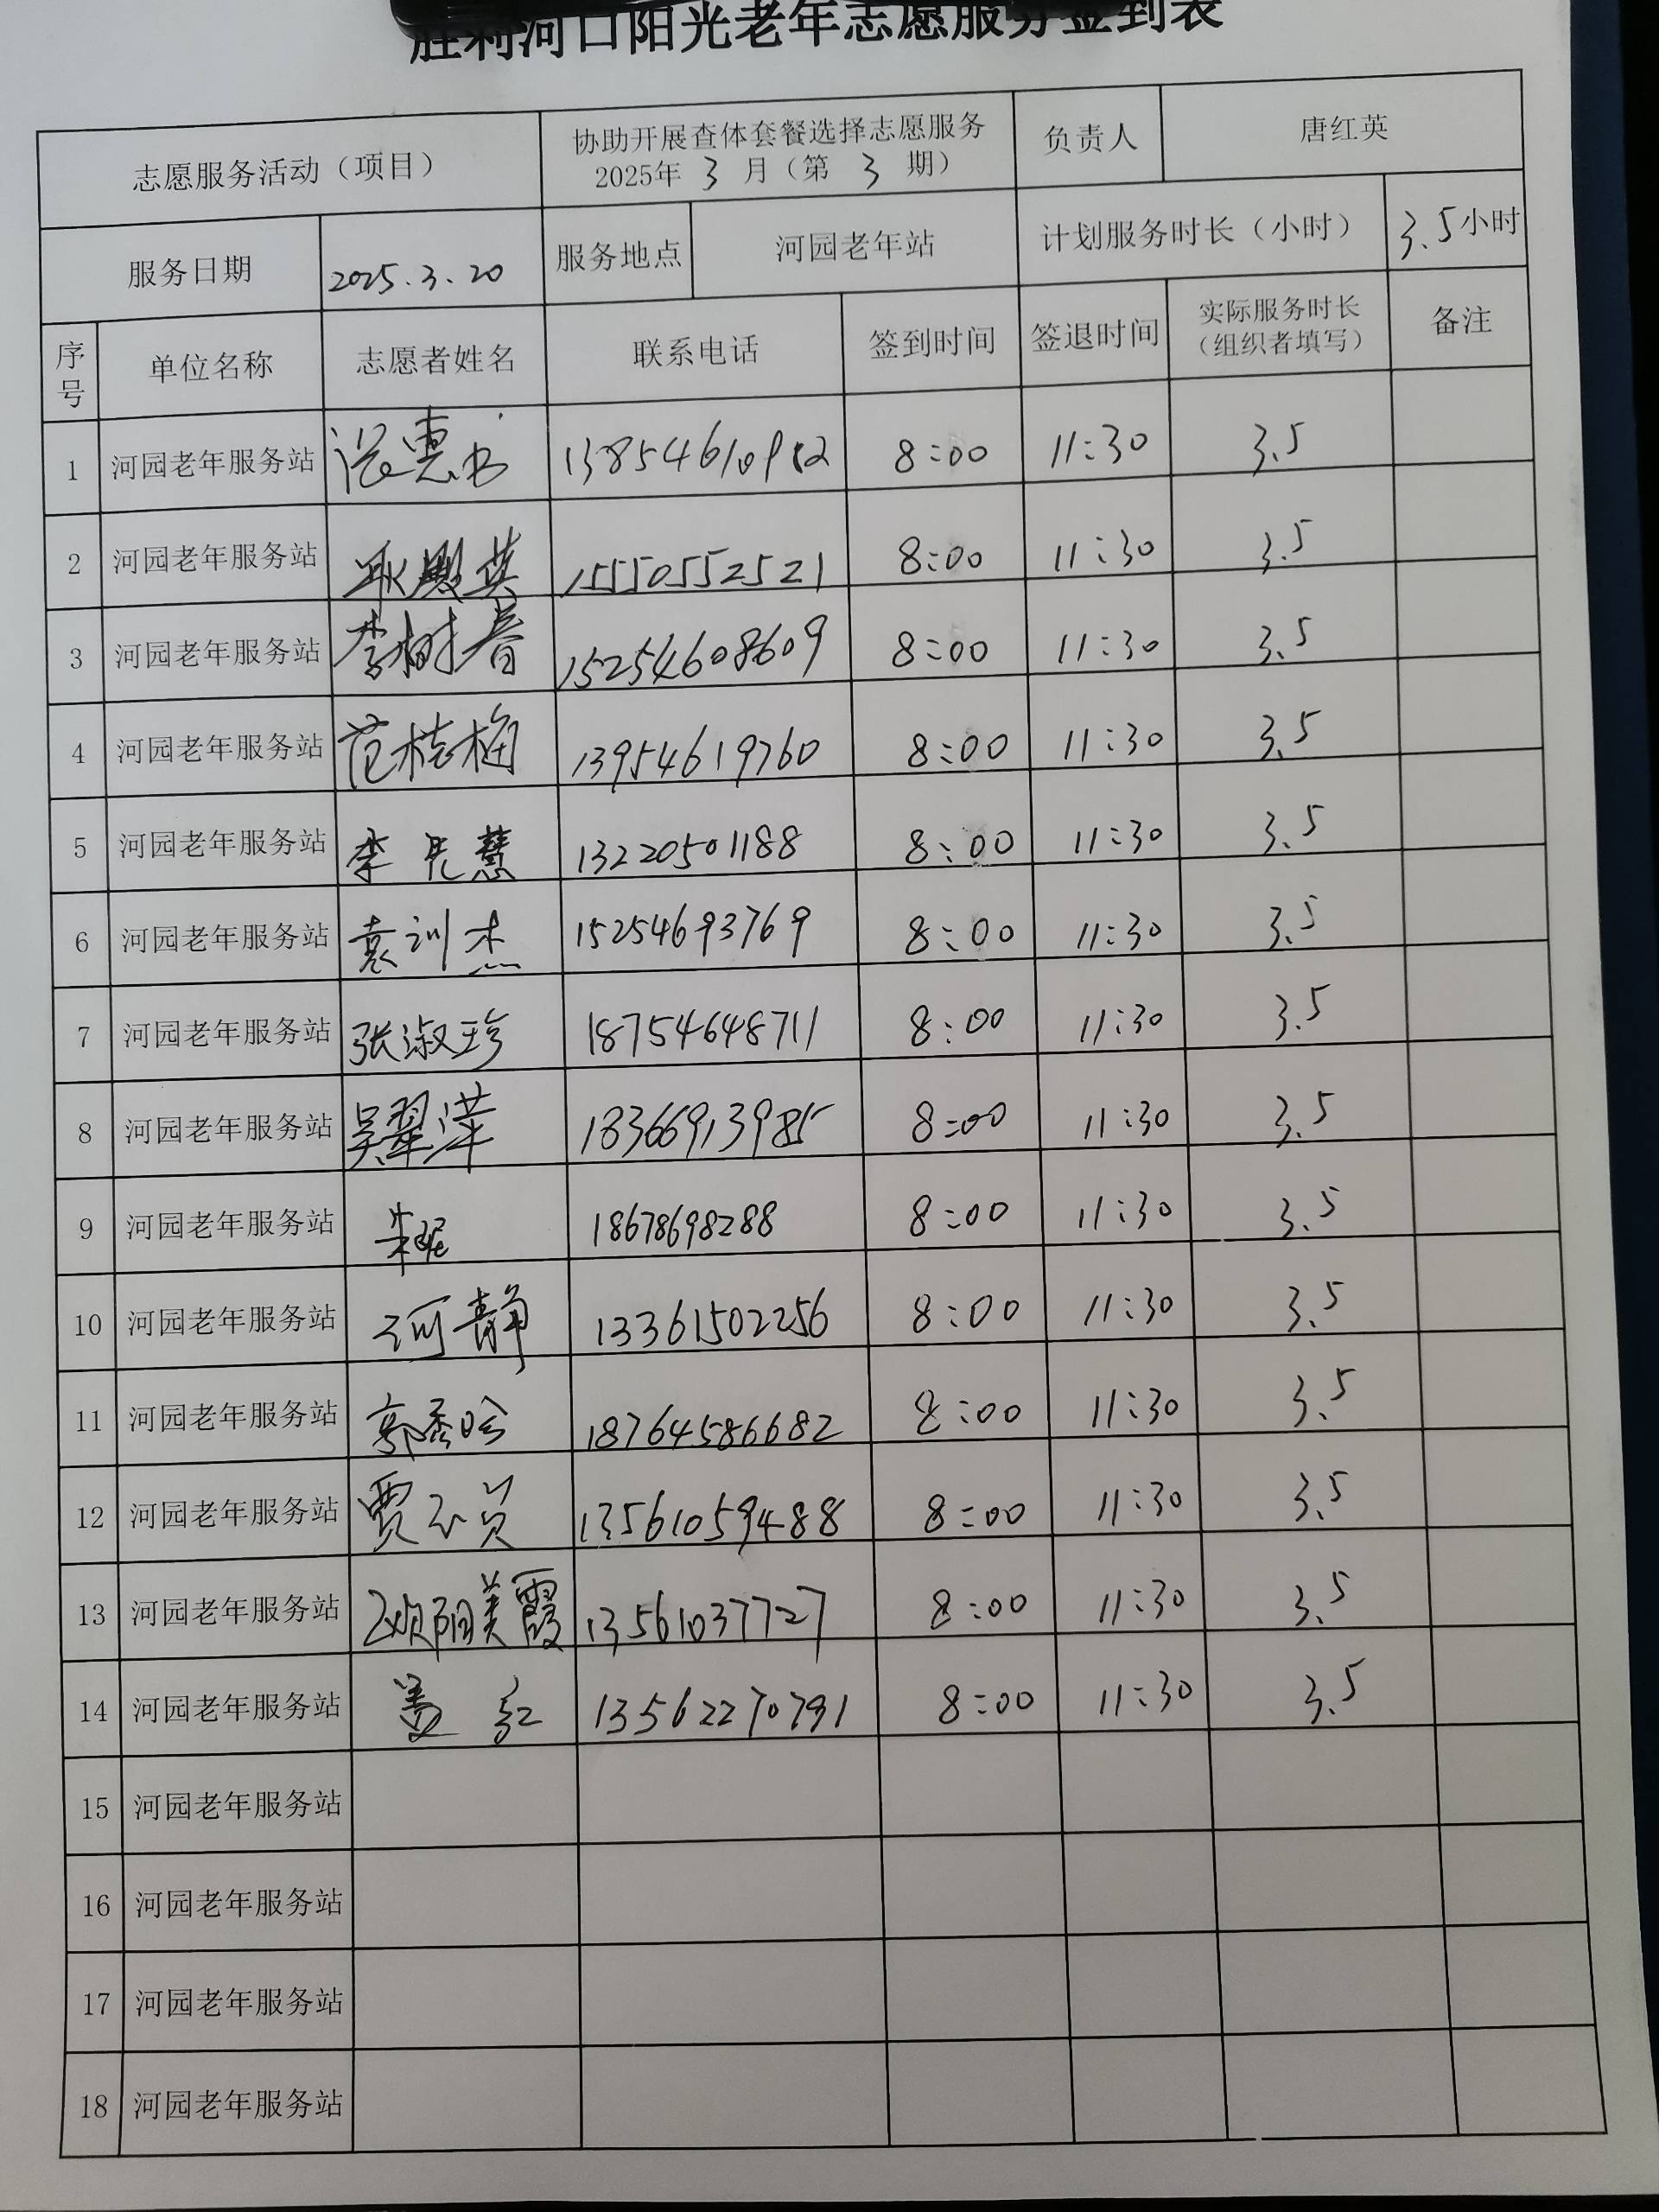 胜利河口阳光老年志愿服务签到表
志愿服务活动（项目） 协助开展查体套餐选择志愿服务 2025年 3 月（第 3 期） 负责人 唐红英
服务日期 2025.3.20 服务地点 河园老年站 计划服务时长（小时） 3.5小时
序号 单位名称 志愿者姓名 联系电话 签到时间 签退时间 实际服务时长（组织者填写） 备注
1 河园老年服务站 8:00 11:30 3.5
2 河园老年服务站 耿殿英 15550552521 8:00 11:30 3.5
3 河园老年服务站 李树春 15254608609 8:00 11:30 3.5
4 河园老年服务站 范桂梅 13954619760 8:00 11:30 3.5
5 河园老年服务站 李先慧 13220501188 8:00 11:30 3.5
6 河园老年服务站 袁训杰 15254693769 8:00 11:30 3.5
7 河园老年服务站 张淑珍 18754648711 8:00 11:30 3.5
8 河园老年服务站 吴翠萍 18366913985 8:00 11:30 3.5
9 河园老年服务站 18678698288 8:00 11:30 3.5
10 河园老年服务站 13361502256 8:00 11:30 3.5
11 河园老年服务站 18764586682 8:00 11:30 3.5
12 河园老年服务站 13561059488 8:00 11:30 3.5
13 河园老年服务站 欧阳美霞 13561037727 8:00 11:30 3.5
14 河园老年服务站 盖红 13562270791 8:00 11:30 3.5
15 河园老年服务站
16 河园老年服务站
17 河园老年服务站
18 河园老年服务站